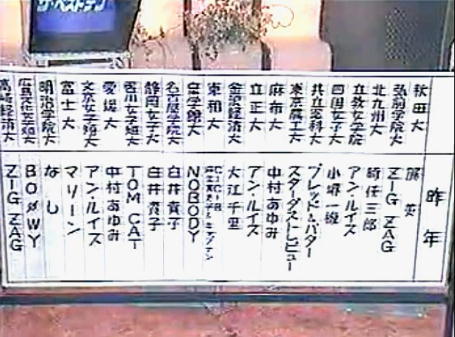 ザ・ベストテン
秋田大
弘前学院大
北九州大
四国女子大
共立薬科大
東京農工大
麻布大
立正大
金沢経済大
東和大
皇学館大
名古屋学院大
静岡女子大
香川女子短大
愛媛大
文京女子短大
富士大
明治学院大
高崎経済大
昨年
ZIG ZAG
時任三郎
アン・ルイス
ブレッド&バター
スターダストレビュー
中村あゆみ
アン・ルイス
大江千里
C-C-B
NOBODY
白井貴子
白井貴子
TOM CAT
中村あゆみ
アン・ルイス
マリーン
なし
BOØWY
ZIG ZAG